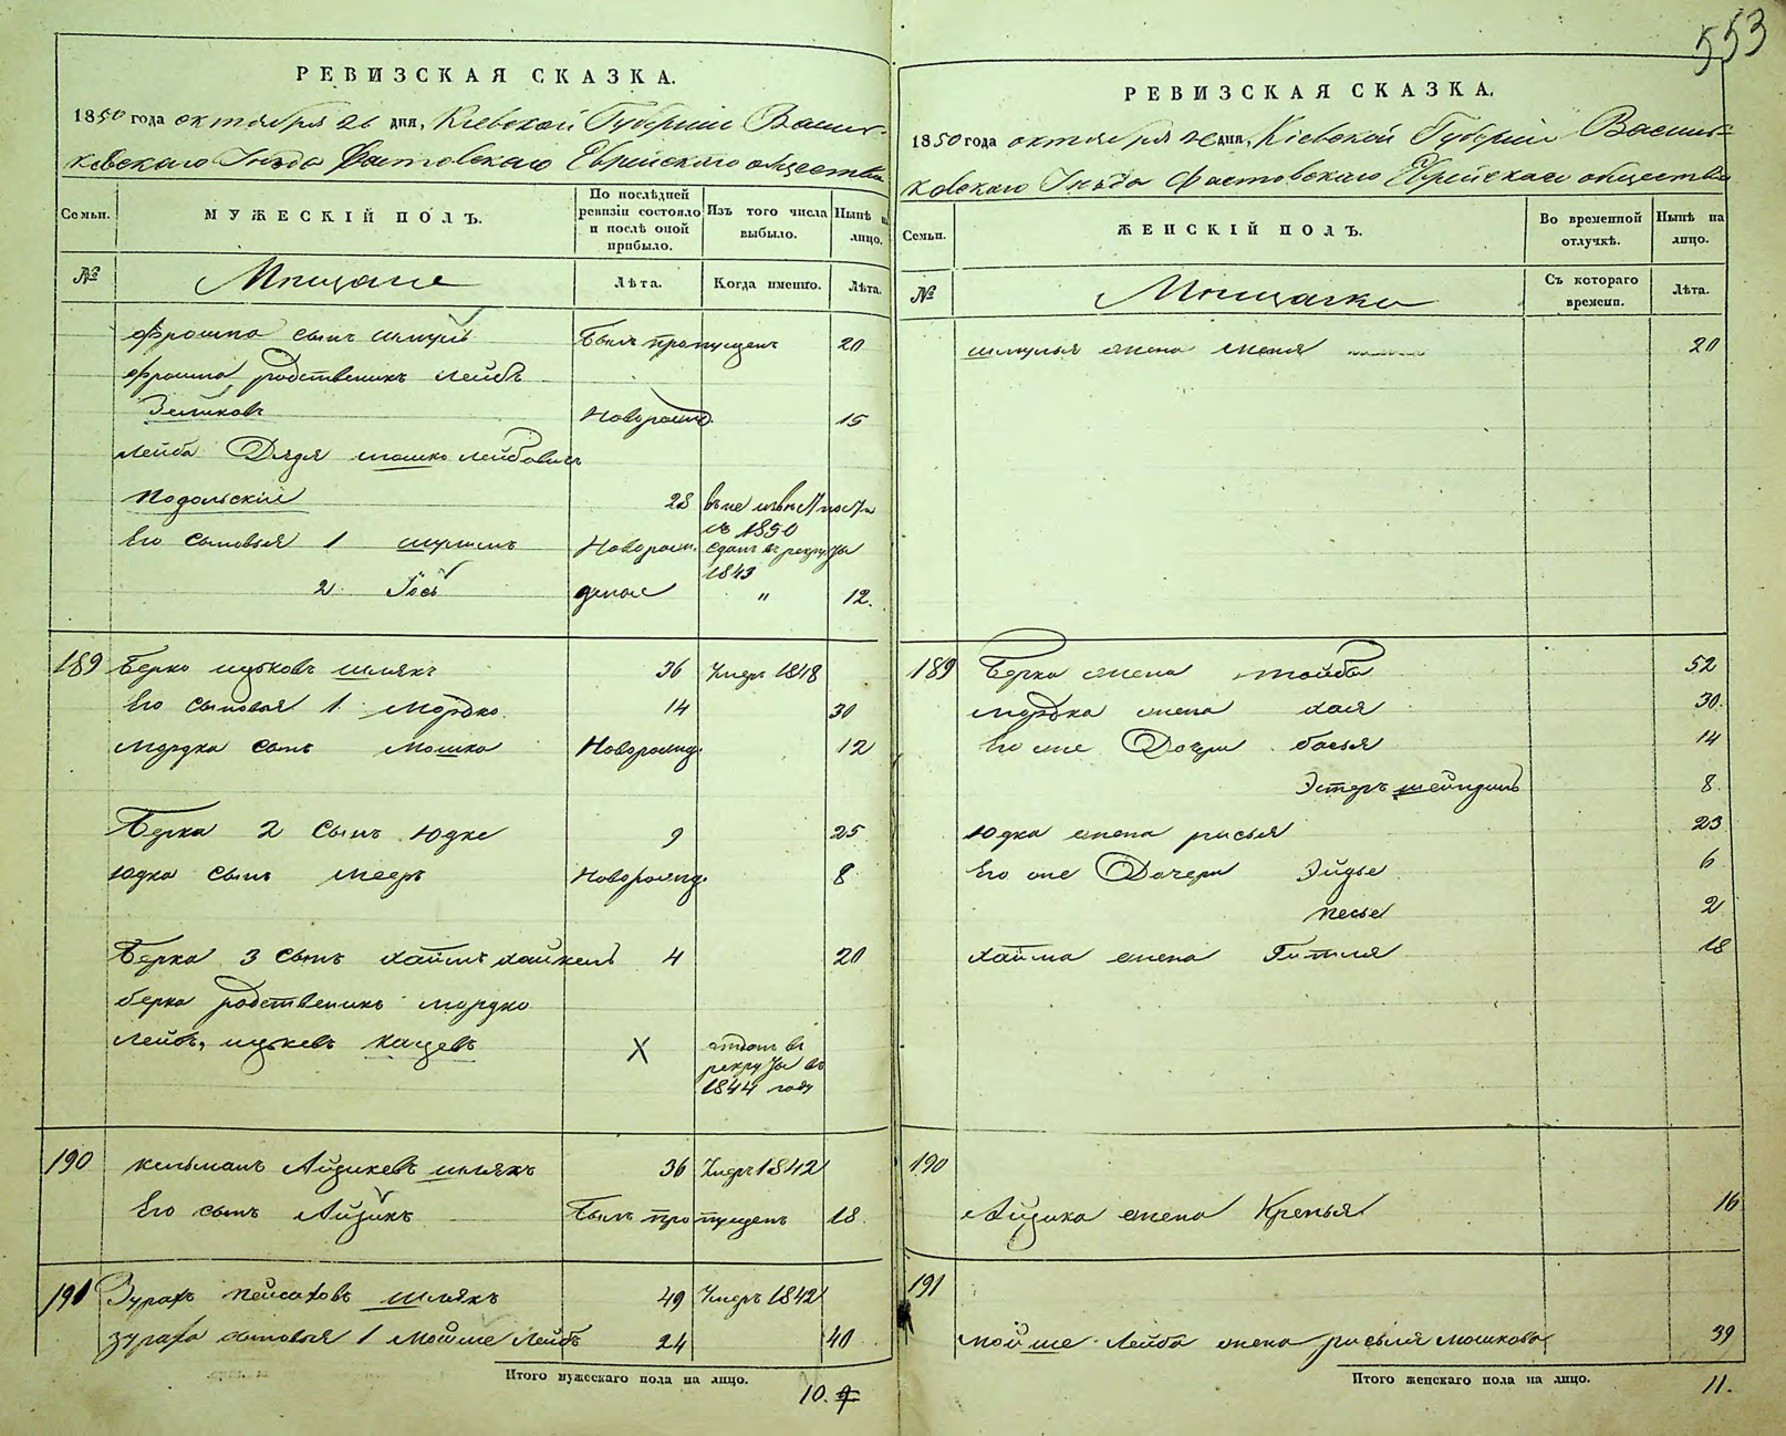 553
РЕВИЗСКАЯ СКАЗКА.
1850 года октября 26 дня, Кіевской Губерніи Василь-
ковскаго Уѣзда Фастовскаго Еврейскаго общества
Семьи. МУЖЕСКІЙ ПОЛЪ. По послѣдней ревизіи состояло и послѣ оной прибыло. Изъ того числа выбыло. Нынѣ на лицо.
№ Мѣщане Лѣта. Когда именно. Лѣта.
Фроима сынъ Шмуль Былъ пропущенъ 20
Фроима родственикъ Лейбъ
Зеликовъ Новорожд. 15
Лейба Дядя Мошко Лейбовичъ
Подольскій 28 въ не извѣстности
съ 1850
Его сыновья 1 Шулимъ Новорож. сданъ въ рекруты
1843
2 Іось денъ " 12.
189 Берко Ицковъ Шлякъ 36 Умеръ 1848
Его сыновья 1 Мордко 14 30
Мордка сынъ Мошко Новорожд. 12
Берка 2 сынъ Юдко 9 25
Юдка сынъ Мееръ Новорожд. 8
Берка 3 сынъ Хаимъ Хайкель 4 20
Берка родственикъ Мордко
Лейбъ, Ицковъ Кацевъ X отданъ въ
рекруты въ
1844 году
190 Кельманъ Айзиковъ Шлякъ 36 Умеръ 1842
Его сынъ Айзикъ Былъ пропущенъ 18
191 Зурахъ Пейсаховъ Шлякъ 49 Умеръ 1842
Зураха сыновья 1 Мойше Лейбъ 24 40
Итого мужескаго пола на лицо.
10.
РЕВИЗСКАЯ СКАЗКА.
1850 года октября 26 дня, Кіевской Губерніи Василь-
ковскаго Уѣзда Фастовскаго Еврейскаго общества
Семьи. ЖЕНСКІЙ ПОЛЪ. Во временной отлучкѣ. Нынѣ на лицо.
№ Мѣщанки Съ котораго времени. Лѣта.
Шмуля жена 20
189 Берка жена Тойба 52
Мордка жена Хая 30.
Его же Дочери Басья 14
Эстеръ Шейндль 8.
Юдка жена Рисья 23
Его же Дочери Эйдье 6
Песье 2
Хаима жена Гитля 18
190
Айзика жена Кренья 16
191
Мойше Лейба жена Рисьля Мошкова 39
Итого женскаго пола на лицо.
11.